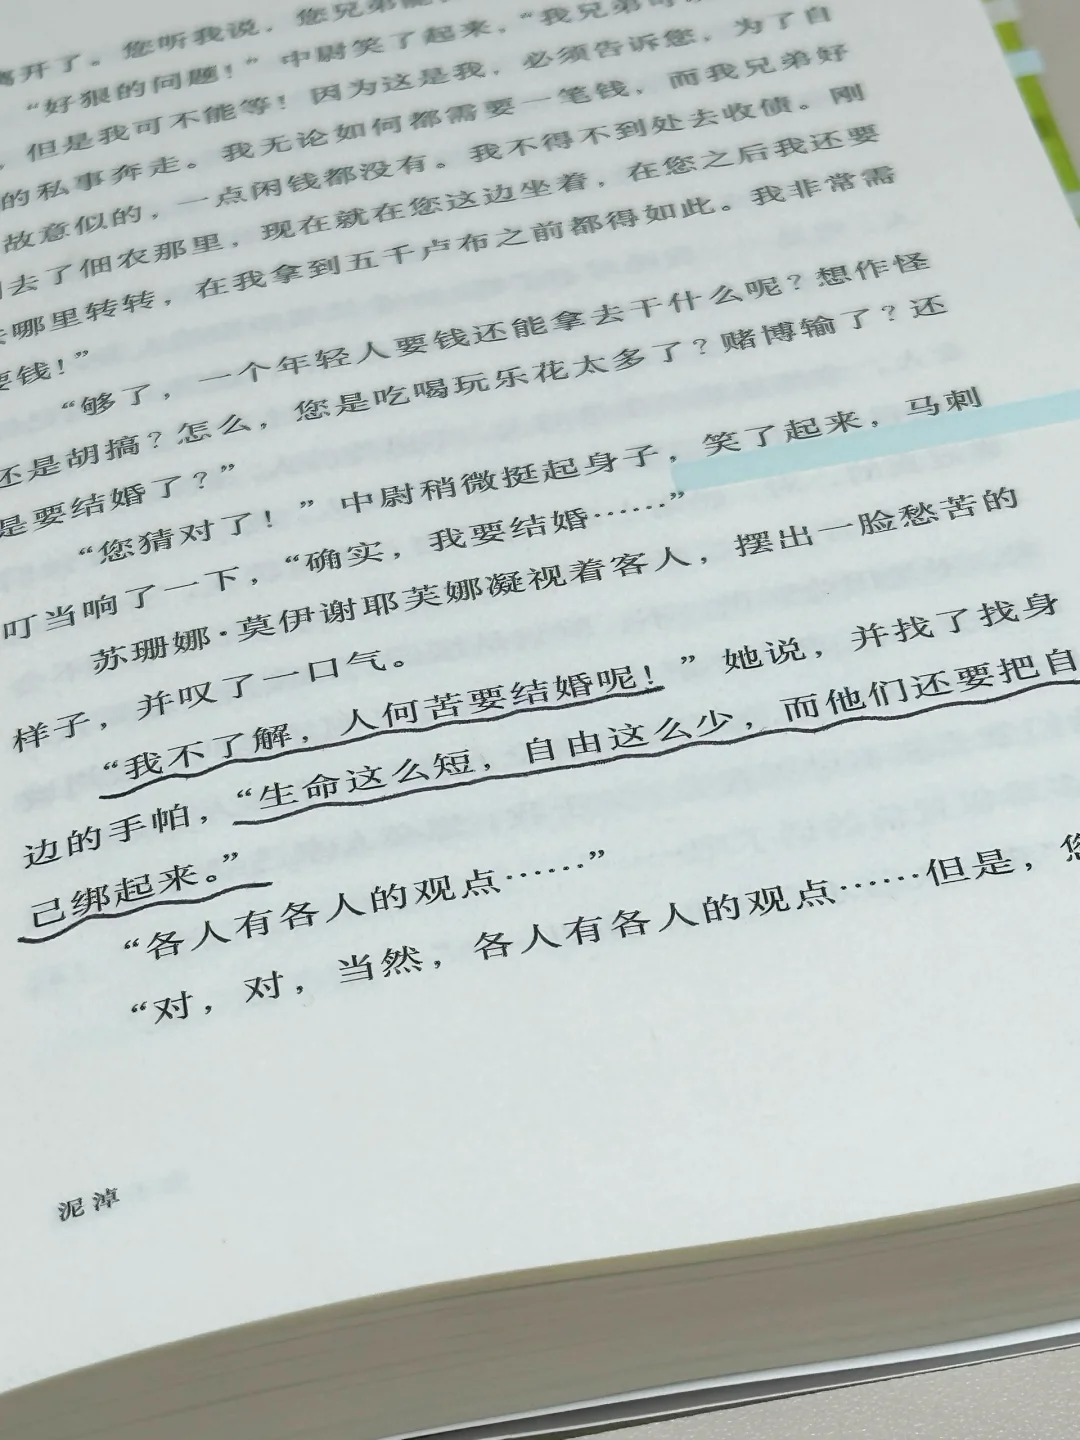 离开了。您听我说，您兄弟
“好狠的问题！”中尉笑了起来，“我兄弟可
，但是我可不能等！因为这是我，必须告诉您，为了自
的私事奔走。我无论如何都需要一笔钱，而我兄弟好
故意似的，一点闲钱都没有。我不得不到处去收债。刚
去了佃农那里，现在就在您这边坐着，在您之后我还要
哪里转转，在我拿到五千卢布之前都得如此。我非常需
要钱！”
“够了，一个年轻人要钱还能拿去干什么呢？想作怪
还是胡搞？怎么，您是吃喝玩乐花太多了？赌博输了？还
是要结婚了？”
“您猜对了！”中尉稍微挺起身子，笑了起来，马刺
叮当响了一下，“确实，我要结婚……”
苏珊娜·莫伊谢耶芙娜凝视着客人，摆出一脸愁苦的
样子，并叹了一口气。
“我不了解，人何苦要结婚呢！”她说，并找了找身
边的手帕，“生命这么短，自由这么少，而他们还要把自
己绑起来。”
“各人有各人的观点……”
“对，对，当然，各人有各人的观点……但是，您
泥淖